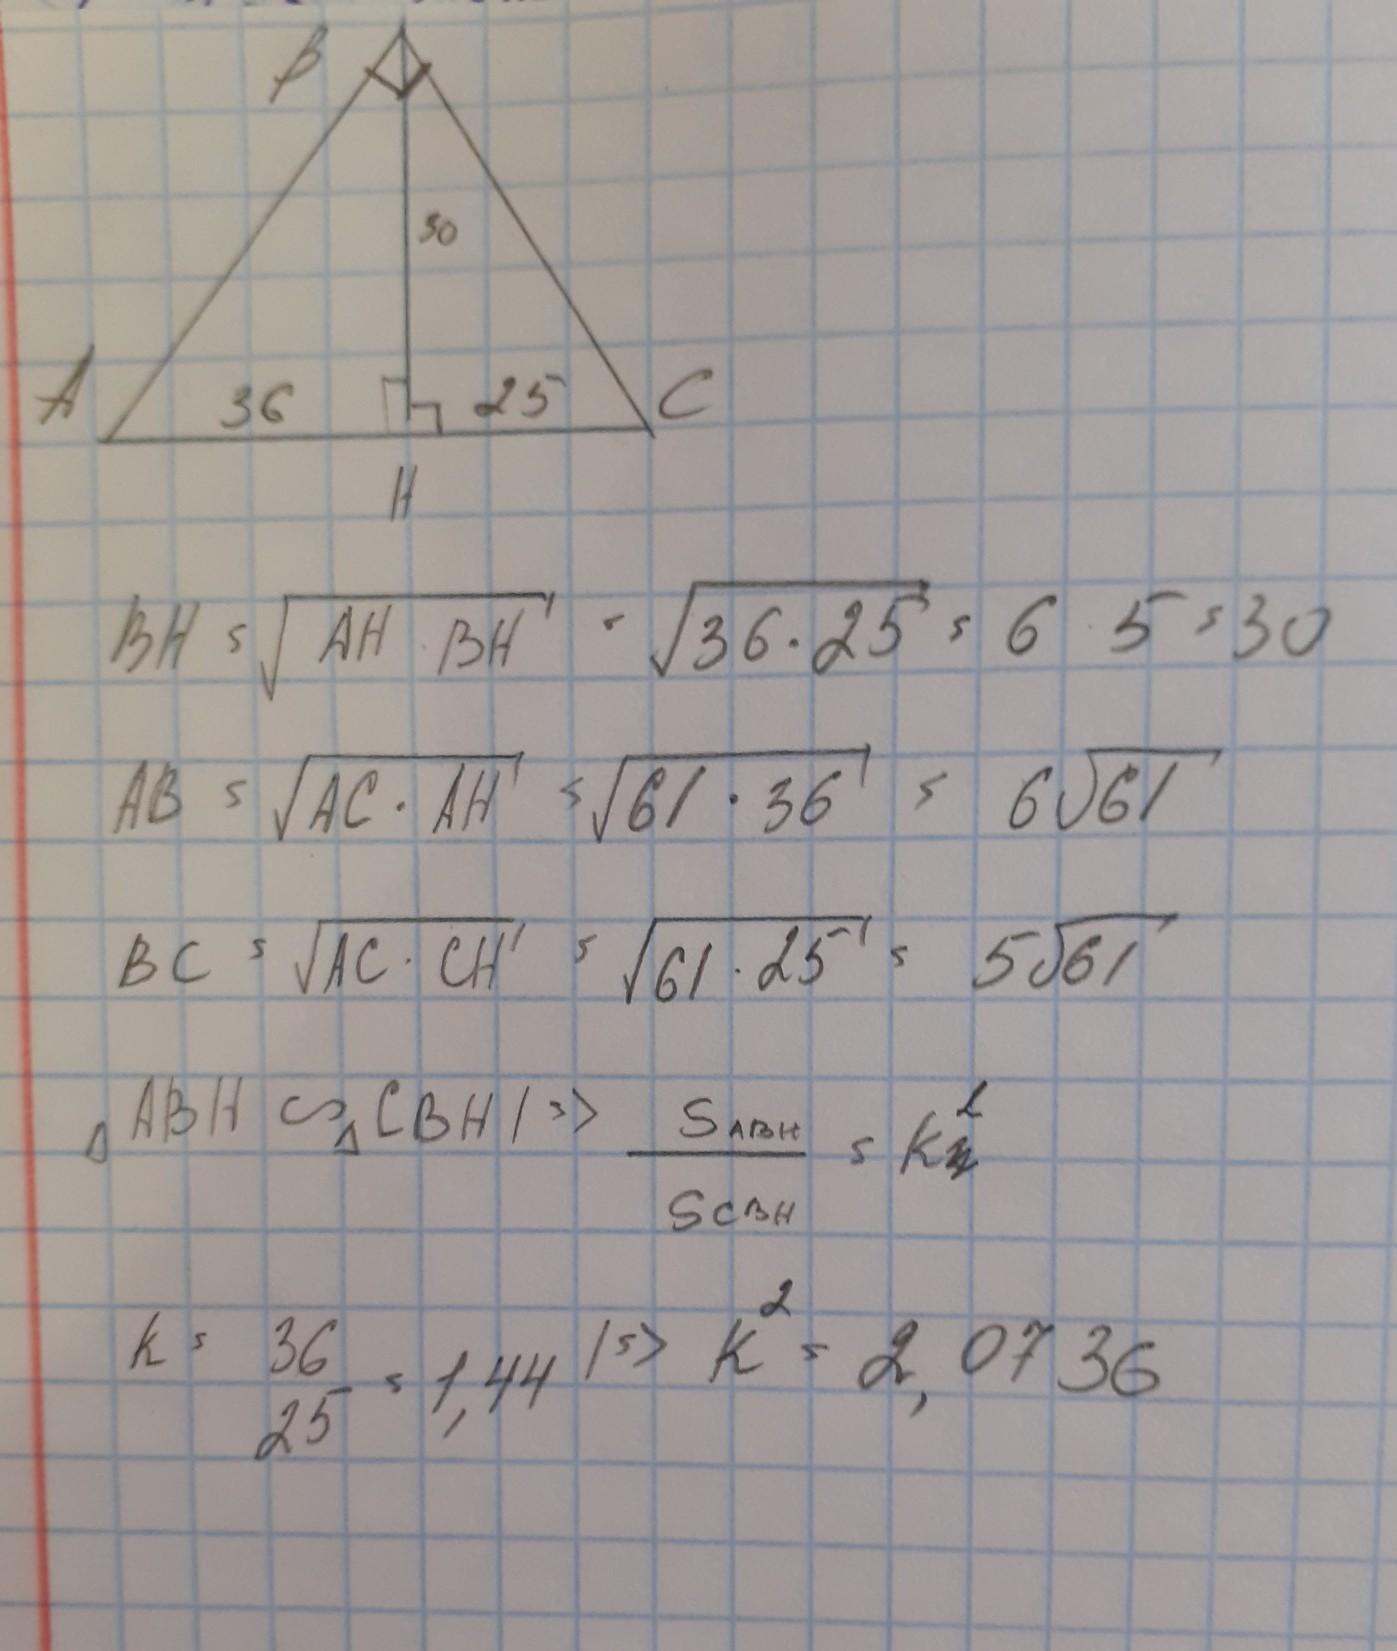 B
30
A 36 25 C
H
BH = √AH · BH = √36 · 25 = 6 · 5 = 30
AB = √AC · AH = √61 · 36 = 6√61
BC = √AC · CH = √61 · 25 = 5√61
△ABH ∾ △CBH |=> S ABH / S CBH = k²
k = 36/25 = 1,44 |=> k² = 2,0736